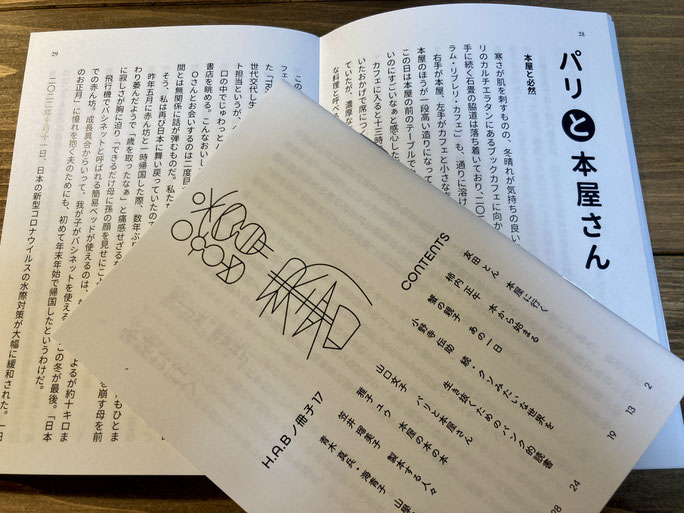 28
パリと本屋さん
本屋と必然
寒さが肌を刺すものの、冬晴れが気持ちの良い
リのカルチエラタンにあるブックカフェに向か
手に続く石畳の脇道は落ち着いており、二〇
ラム・リブレリ・カフェ)も、通りに溶け
右手が本屋、左手がカフェと小さな
本屋のほうが一段高い造りになって
この日は本屋の前のテーブルで
いのにすごいなぁと感心した
カフェに入ると十三時
いたおかげで席につ
ていたが、濃厚な
な料理と呼べ
29
この
カフェ
た「TR
世代交代し
ト担当というが、
口の中でじゅわっと
書店を眺める、こんなおいし
Oさんとお会いするのは二度目
間とは無関係に話が弾むものだ。私た
そう、私は再び日本に舞い戻っていたの
昨年五月に赤ん坊と一時帰国した際、数年ぶ
わり萎んだようで「歳を取ったなぁ」と痛感せざる
に寂しさが胸に迫り「できるだけ母に孫の顔を見せに
飛行機でバシネットと呼ばれる簡易ベッドが使えるのは、
よるが約十キロま
での赤ん坊。成長具合からいって、我が子がバシネットを使える
この冬が最後。「日本
のお正月」に憧れを抱く夫のためにも、初めて年末年始で帰国したというわけだ。
二〇二二年十月十一日、日本の新型コロナウイルスの水際対策が大幅に緩和された。一日
CONTENTS
友田とん 本屋に行く 2
柿内正午 本から始まる 13
蟹の親子 あの一日 19
小野寺伝助 続・クソみたいな世界を
生き抜くためのパンク的読書 24
山口文子 パリと本屋さん 28
雅子ユウ 本屋の本の本
笠井瑠美子 製本する人々
青木真兵・海青子 山學
H.A.Bノ冊子17